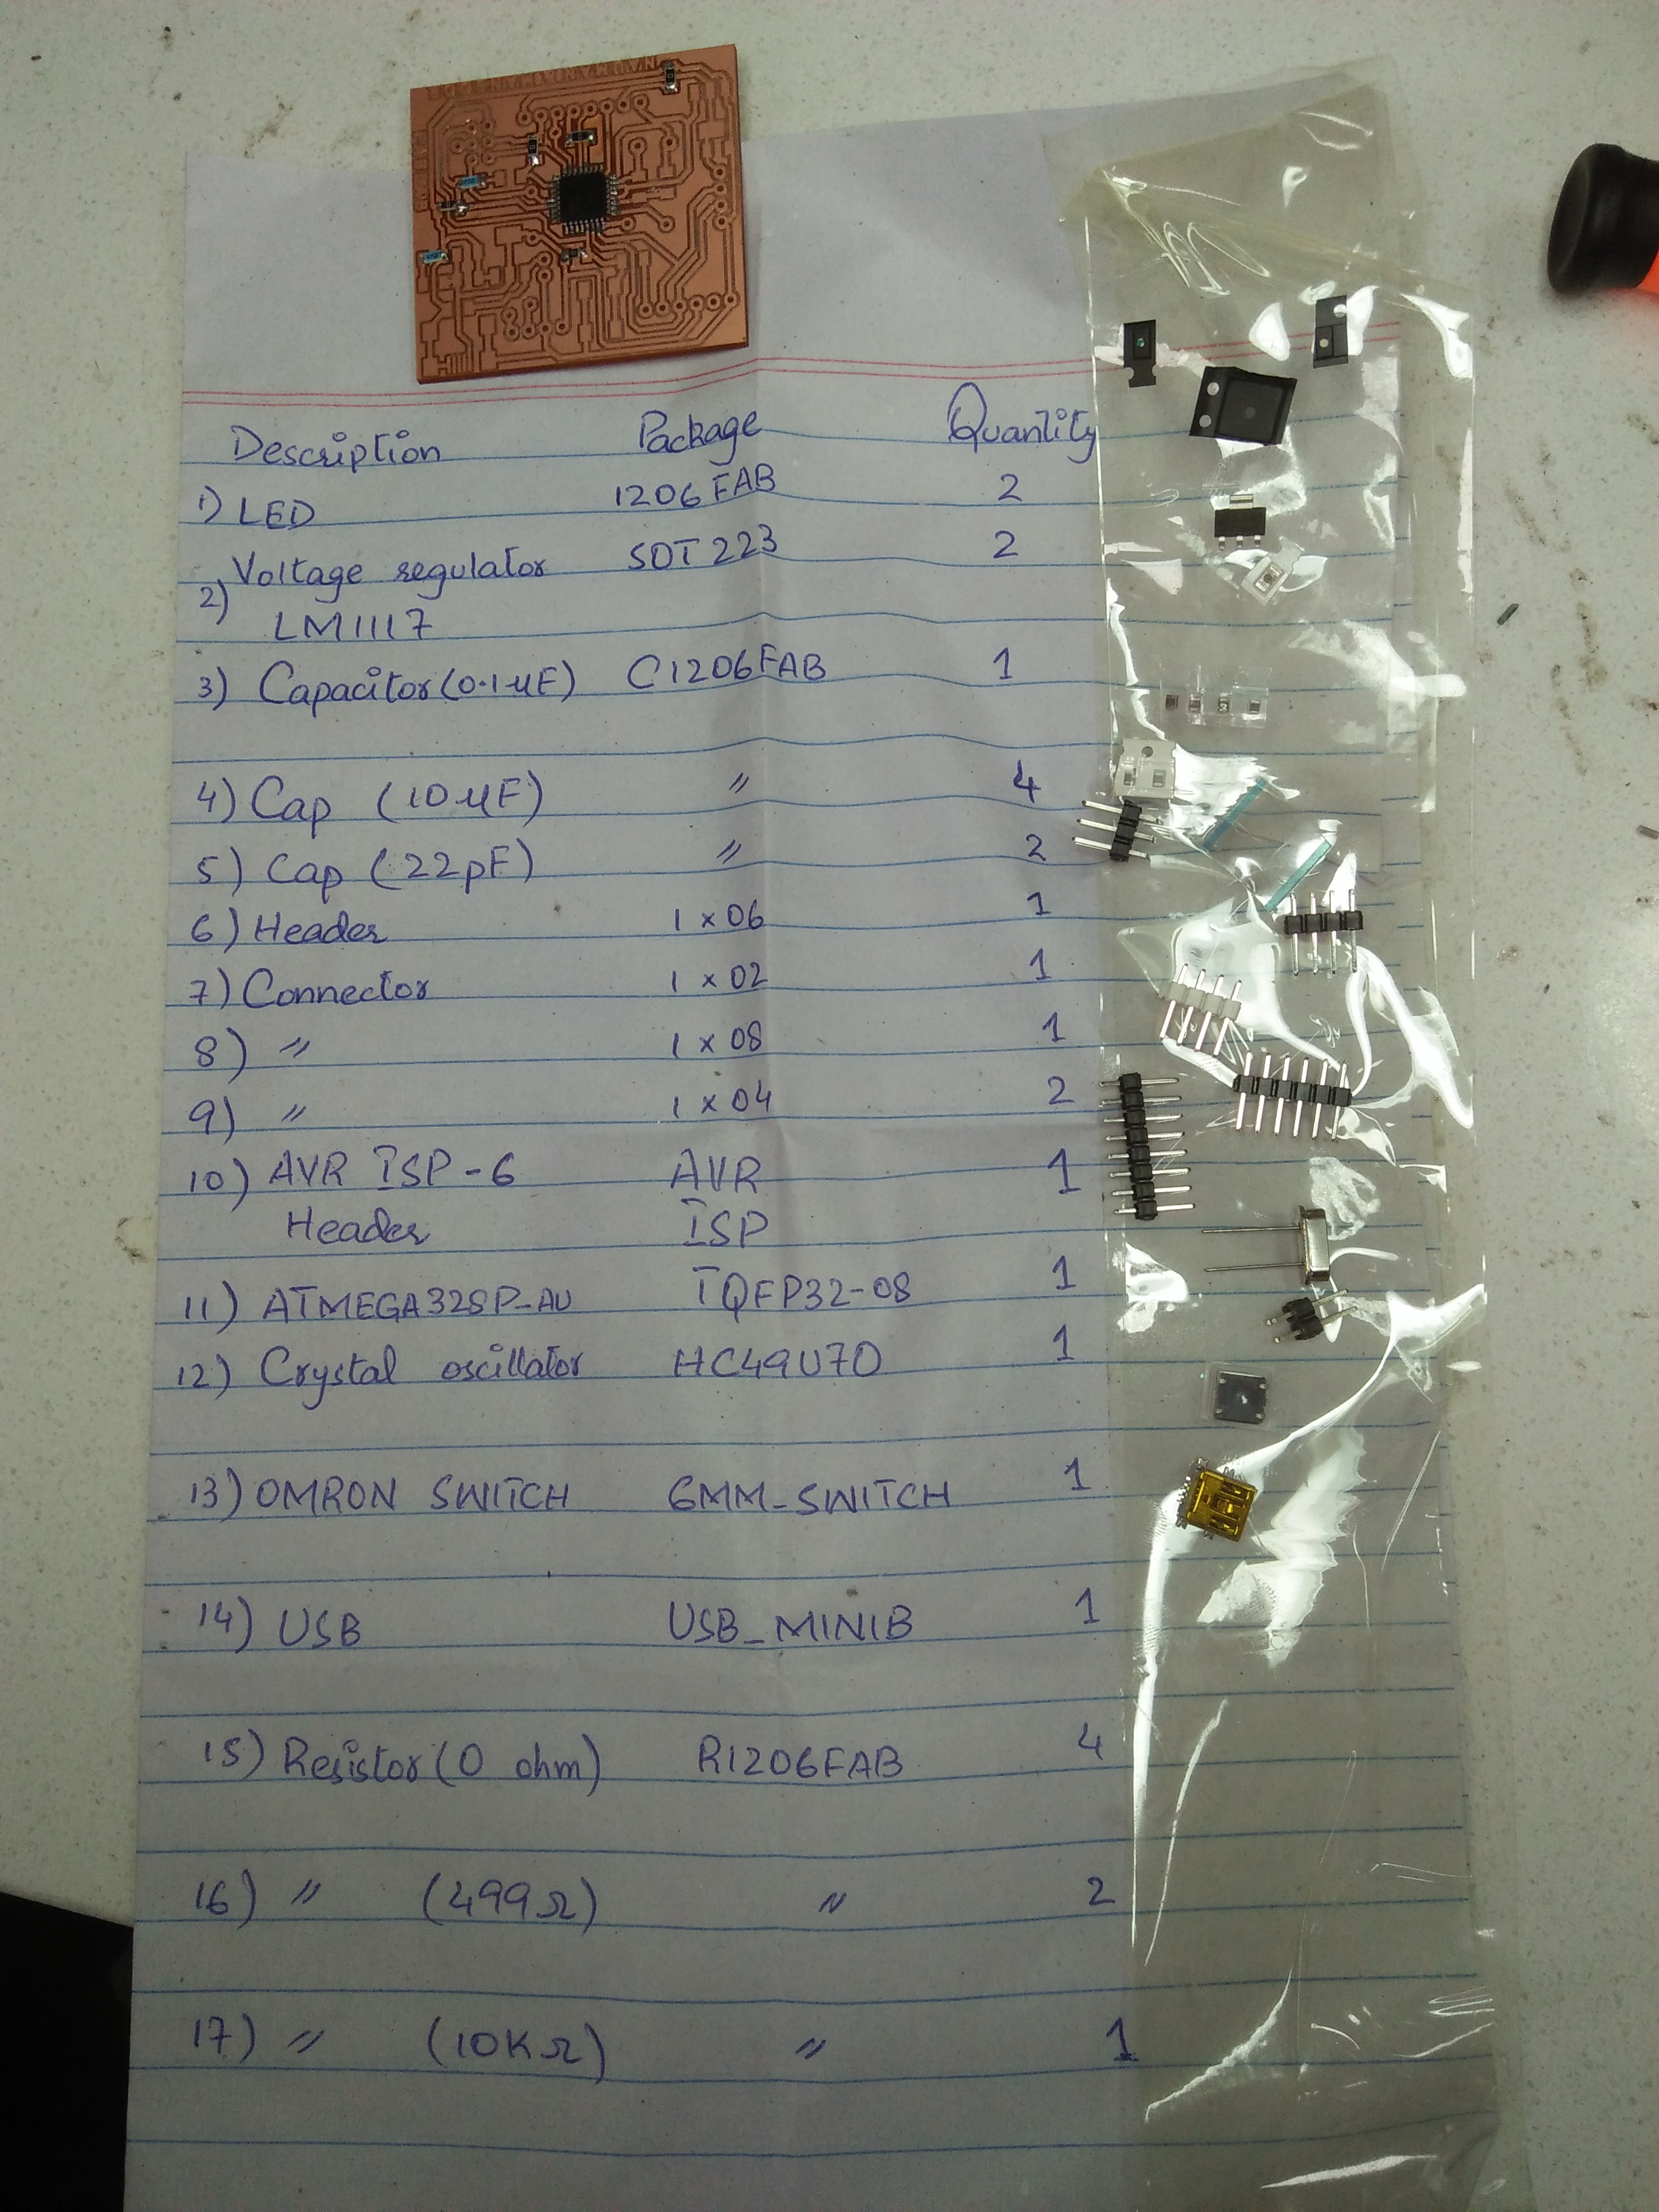 Description Package Quantity
1) LED 1206FAB 2
2) Voltage regulator SOT223 2
LM1117
3) Capacitor (0.1uF) C1206FAB 1
4) Cap (10uF) " 4
5) Cap (22pF) " 2
6) Header 1x06 1
7) Connector 1x02 1
8) " 1x08 1
9) " 1x04 2
10) AVR ISP-6 AVR 1
Header ISP
11) ATMEGA328P-AU TQFP32-08 1
12) Crystal oscillator HC49U70 1
13) OMRON SWITCH 6MM_SWITCH 1
14) USB USB_MINIB 1
15) Resistor (0 ohm) R1206FAB 4
16) " (499Ω) " 2
17) " (10KΩ) " 1